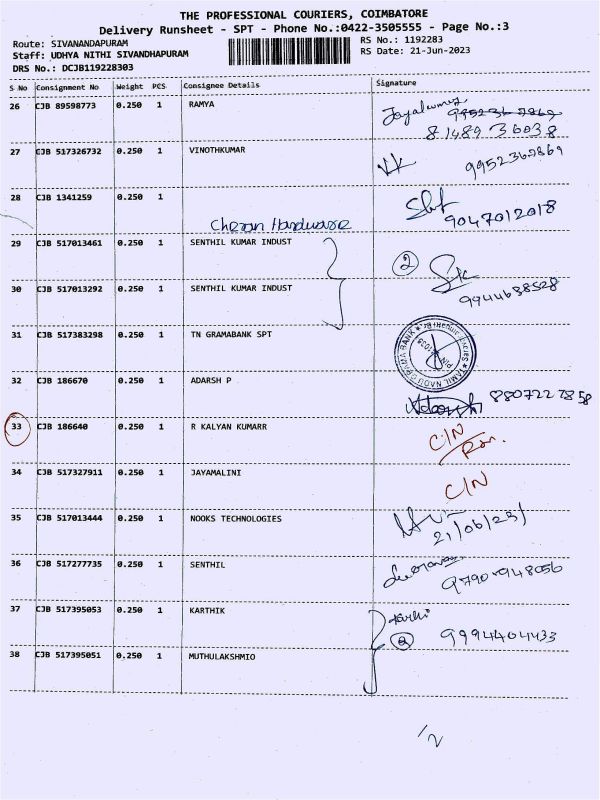 THE PROFESSIONAL COURIERS, COIMBATORE
Delivery Runsheet - SPT - Phone No.:0422-3505555 - Page No.:3
Route: SIVANANDAPURAM
RS No.: 1192283
Staff: UDHYA NITHI SIVANDHAPURAM
RS Date: 21-Jun-2023
DRS No.: DCJB119228303
S No Consignment No Weight PCS Consignee Details Signature
26 CJB 89598773 0.250 1 RAMYA
81489 36038
27 CJB 517326732 0.250 1 VINOTHKUMAR
9952362869
28 CJB 1341259 0.250 1
9047012018
Cheran Hardware
29 CJB 517013461 0.250 1 SENTHIL KUMAR INDUST
2 Sk
30 CJB 517013292 0.250 1 SENTHIL KUMAR INDUST
9944638528
31 CJB 517383298 0.250 1 TN GRAMABANK SPT
TAMIL NADU GRAMA BANK
32 CJB 186670 0.250 1 ADARSH P
8807227858
33 CJB 186640 0.250 1 R KALYAN KUMARR
C/N
34 CJB 517327911 0.250 1 JAYAMALINI
C/N
35 CJB 517013444 0.250 1 NOOKS TECHNOLOGIES
21/06/23
36 CJB 517277735 0.250 1 SENTHIL
9790948056
37 CJB 517395053 0.250 1 KARTHIK
2 9994404433
38 CJB 517395051 0.250 1 MUTHULAKSHMIO